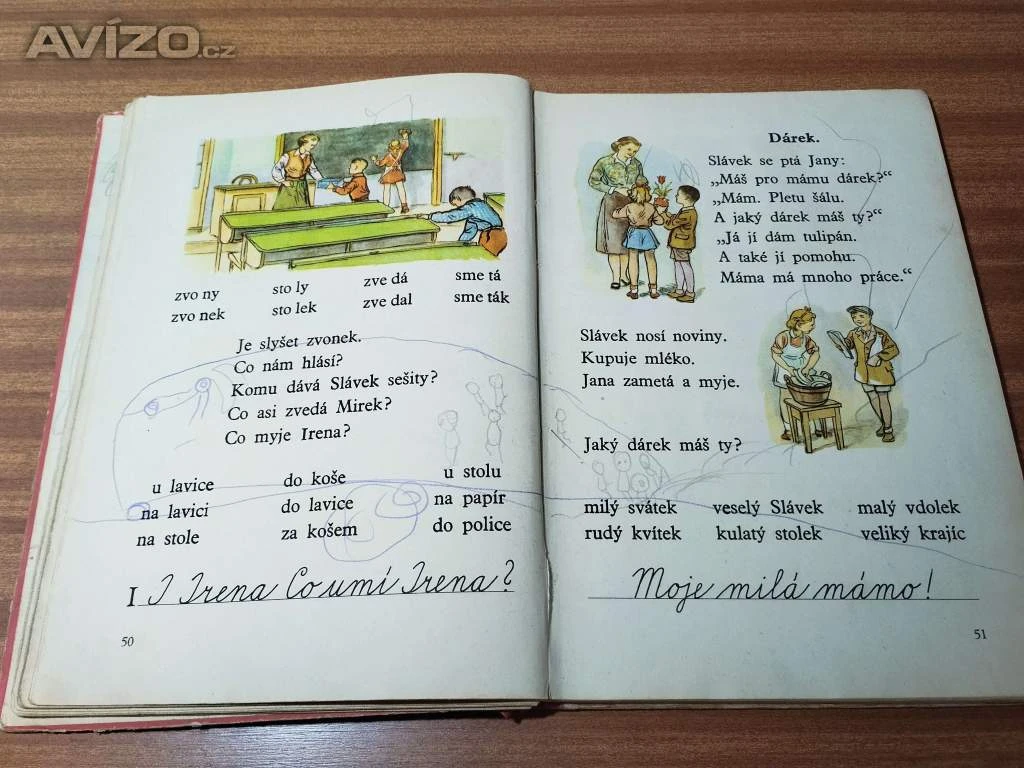 AVÍZO.cz
zvo ny sto ly zve dá sme tá
zvo nek sto lek zve dal sme ták
Je slyšet zvonek.
Co nám hlásí?
Komu dává Slávek sešity?
Co asi zvedá Mirek?
Co myje Irena?
u lavice do koše u stolu
na lavici do lavice na papír
na stole za košem do police
I I Irena Co umí Irena?
50
Dárek.
Slávek se ptá Jany:
„Máš pro mámu dárek?“
„Mám. Pletu šálu.
A jaký dárek máš ty?“
„Já jí dám tulipán.
A také jí pomohu.
Máma má mnoho práce.“
Slávek nosí noviny.
Kupuje mléko.
Jana zametá a myje.
Jaký dárek máš ty?
milý svátek veselý Slávek malý vdolek
rudý kvítek kulatý stolek veliký krajíc
Moje milá mámo!
51